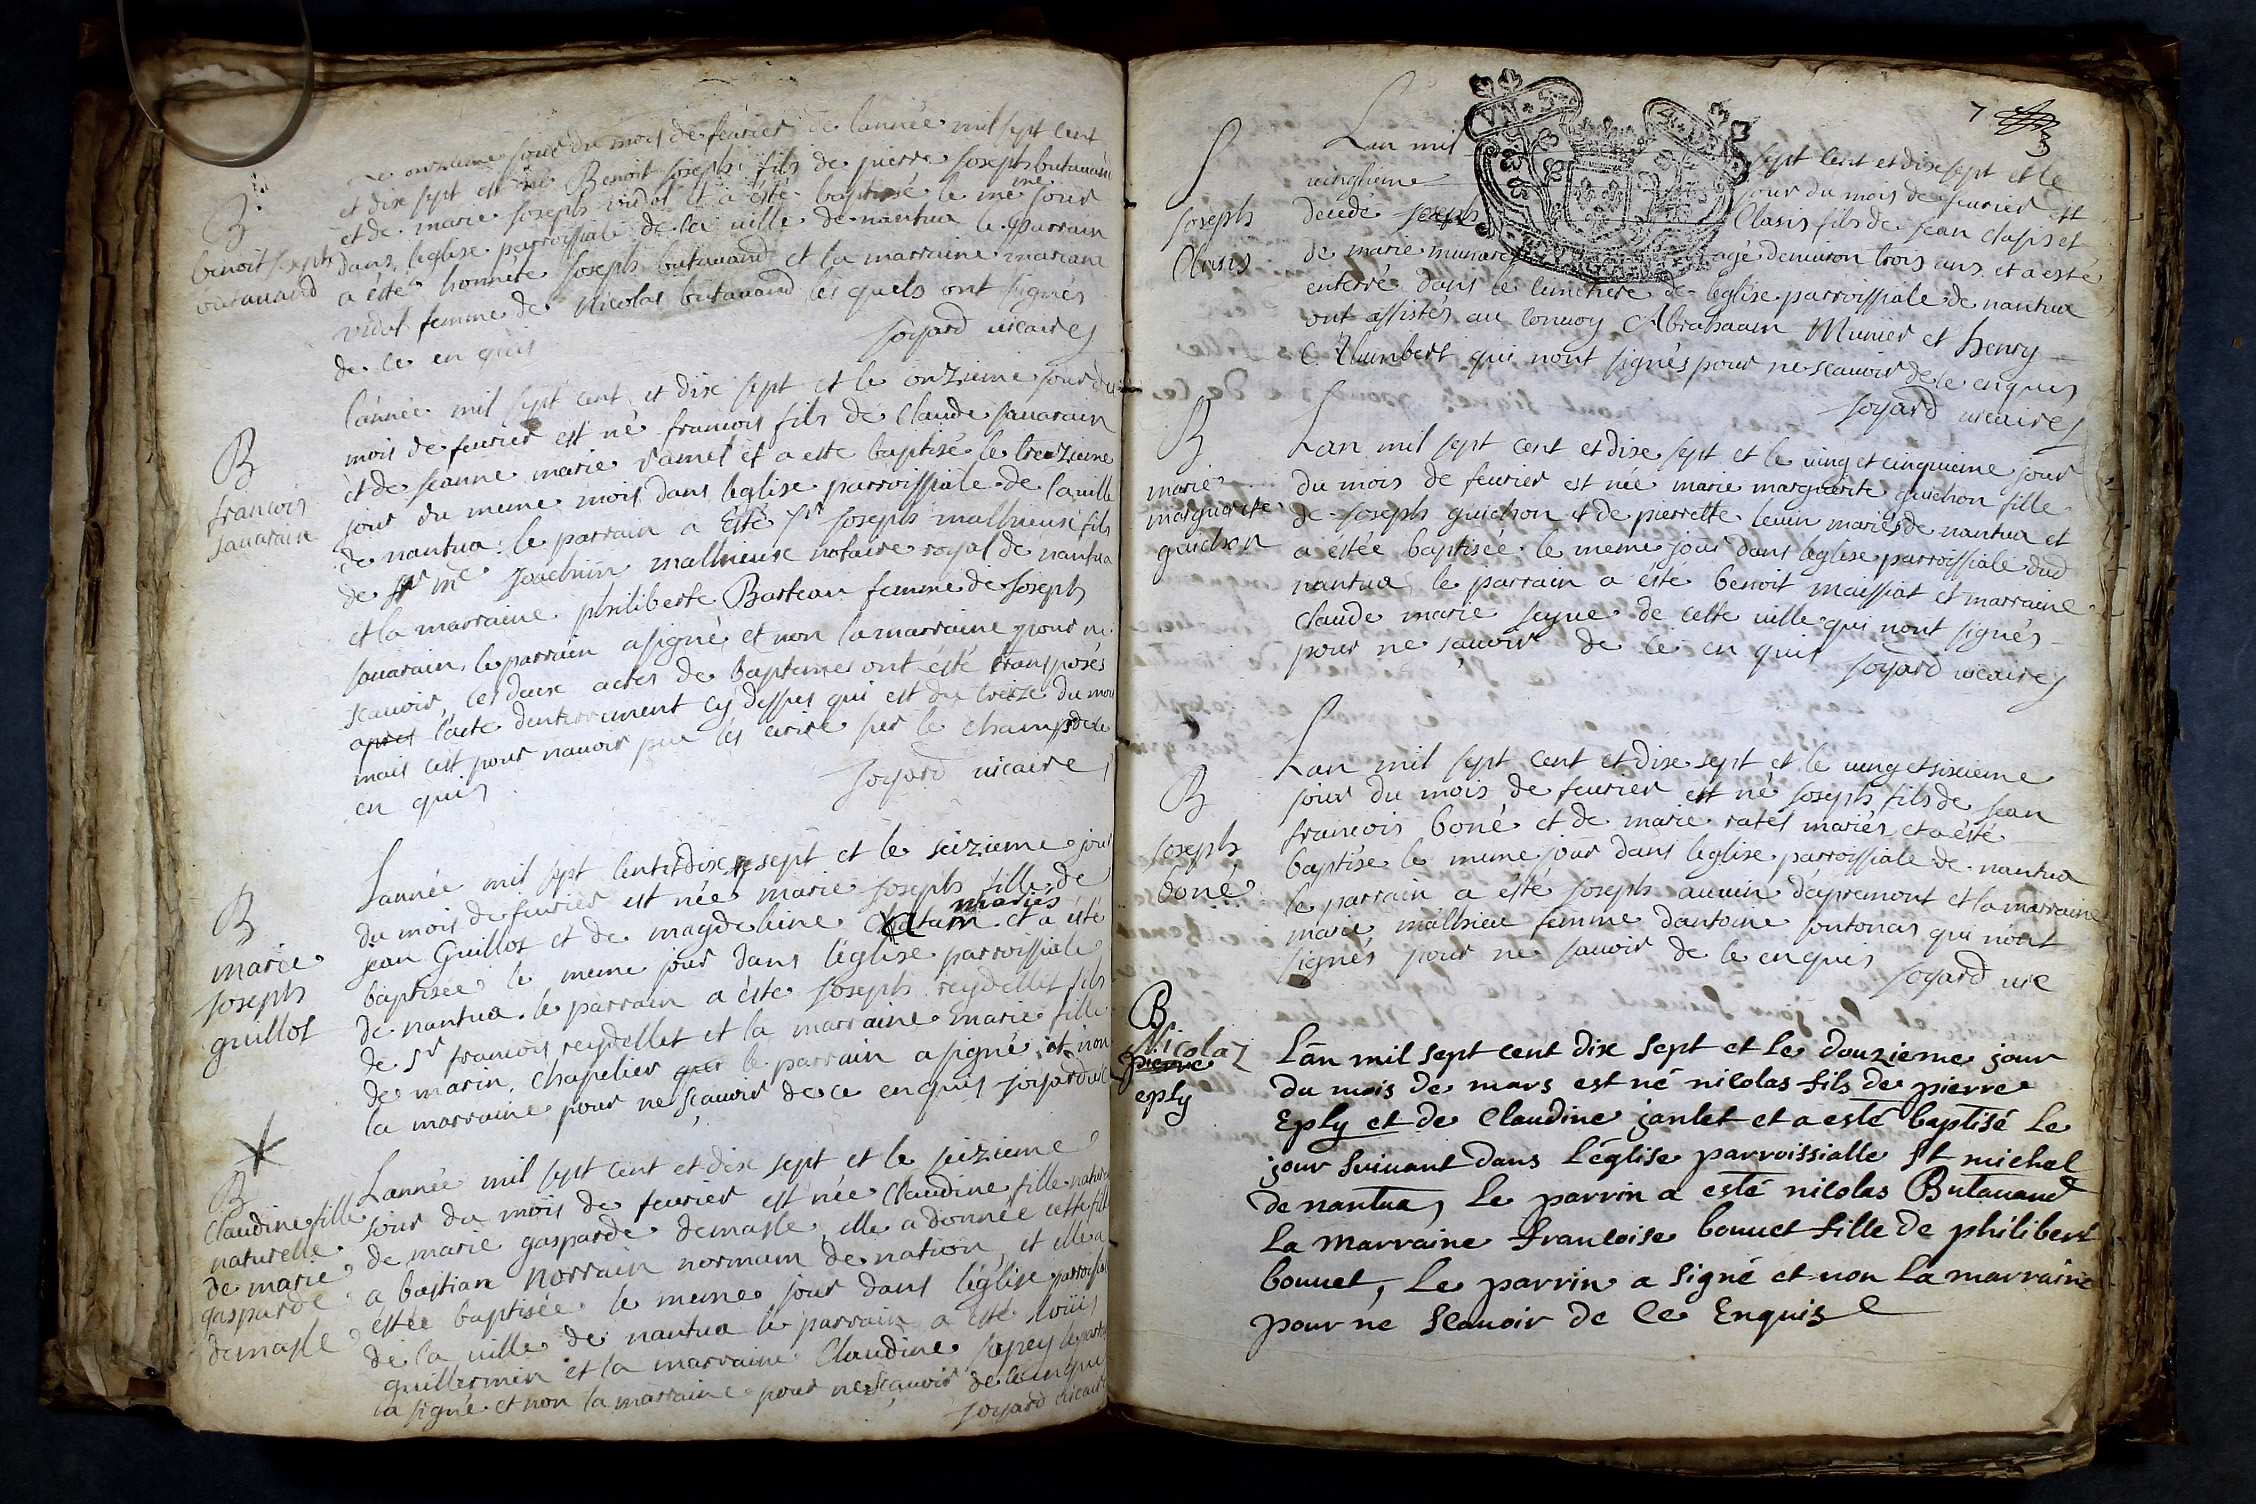 Le onzieme jour du mois de feurier de lannée mil sept cent
et dix sept est né Benoit Joseph fils de pierre Joseph butauand
et de marie Joseph vidal et a été baptisé le meme jour
dans leglise parroissiale de la uille de nantua le parrain
a esté honnête Joseph butauand et la marraine mariane
vidal femme de Nicolas butauand les quels ont signés
de ce en quis
Joyard uicaire
B
benoit Joseph
butauand
lannée mil sept cent et dix sept et le onzieme jour du
mois de feurier est né francois fils de Claude sauarain
et de Jeanne marie ramel et a esté baptisé le treizieme
jour du meme mois dans leglise parroissiale de la uille
de nantua. le parrain a esté Sr Joseph malhieuse fils
de Sr me Joachim malhieuse notaire royal de nantua
et la marraine philiberte Barteau femme de Joseph
sauarain, le parrain a signé et non la marraine pour ne
scauoir, ces deux actes de bapteme ont esté transposés
apres l'acte denterrement cy dessus qui est du treize du mois
mais cest pour nauoir pu les ecrire sur le champ de ce
en quis
Joyard uicaire
B
francois
sauarain
Lannée mil sept cent et dix sept et le seizieme jour
du mois de feurier est née marie Joseph fille de
jean Guillot et de magdeleine mariés et a été
baptisée le meme jour dans léglise parroissiale
de nantua. le parrain a éste Joseph reydellet fils
de Sr francois reydellet et la marraine marie fille
de marin, chapelier le parrain a signé et non
la marraine pour ne scauoir de ce enquis Joyard uic
B
marie
Joseph
guillot
Lannée mil sept cent et dix sept et le seizieme
jour du mois de feurier est née Claudine fille naturelle
de marie gasparde demasle, elle a donnée cette fille
a bastian norrain normam de nation, et elle a
éstée baptisée le meme jour dans léglise parroissiale
de la uille de nantua le parrain a esté loüis
guillermin et la marraine Claudine sapey le parrain
a signé et non la marraine pour ne scauoir de ce enquis
Joyard uicaire
B
Claudine fille
naturelle
de marie
gasparde
demasle
7
Lan mil sept cent et dix sept et le
uingtieme jour du mois de feurier est
decedé Joseph Clasis fils de Jean clasis et
de marie agé denuiron trois ans et a esté
enterré dans le cimetiere de leglise parroissiale de nantua
ont assistés au conuoy Abrahaam Munier et henry
C. humbert qui nont signés pour ne scauoir de ce enquis
Joyard uicaire
Joseph
Clasis
Lan mil sept cent et dix sept et le uing et cinquieme jour
du mois de feurier est née marie marguerite guichon fille
de Joseph guichon et de pierrette leuin mariés de nantua et
a éstée baptisée le meme jour dans leglise parroissiale dud
nantua le parrain a été benoit maissiat et marraine
Claude marie seyue de cette uille qui nont signés
pour ne sauoir de ce en quis
Joyard uicaire
B
marie
marguerite
guichon
Lan mil sept cent et dix sept et le uing et sixieme
jour du mois de feurier est né Joseph fils de Jean
francois boné et de marie ratel mariés, et a été
baptisé le meme jour dans leglise parroissiale de nantua
le parrain a été Joseph auuin d'apremont et la marraine
marie malhieu femme dantoine sontonas qui n'ont
signés pour ne sauoir de ce enquis
Joyard uic
B
Joseph
boné
L'an mil sept cent dix sept et le douzieme jour
du mois de mars est né nicolas fils de pierre
Eply et de Claudine janlet et a esté baptisé le
jour suiuant dans l'église parroissialle St michel
de nantua, Le parrin a esté nicolas Butauand
La marraine francoise bouuet fille de philibert
bouuet, Le parrin a signé et non la marraine
pour ne Scauoir de ce Enquis
B
Nicolaz
pierre
eply